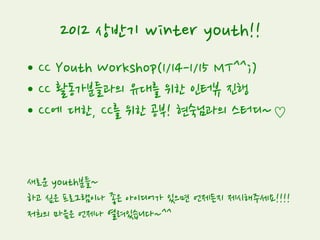 2012 상반기 winter youth!!
• CC Youth Workshop(1/14-1/15 MT^^;)
• CC 활동가분들과의 유대를 위한 인터뷰 진행
• CC에 대한, CC를 위한 공부! 현숙님과의 스터디~ ♡
새로운 youth분들~
하고 싶은 프로그램이나 좋은 아이디어가 있으면 언제든지 제시해주세요!!!!
저희의 마음은 언제나 열려있습니다~^^